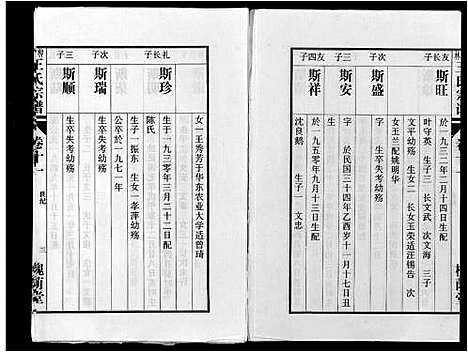 王氏宗谱
友长子
斯旺
字 公一九三二年二月十四日生配
叶守英 生子三 长文武 次文海 三子
文平幼殇 生女二 长女玉荣适汪锡告 次
女玉兰配姚明华
次子
斯盛
生卒失考幼殇
三子
斯安
字 公民国三十四年乙酉岁十一月十七日丑
友四子
斯祥
公一九五〇年九月十三日生配
沈良鹅 生子一 文忠
女一王秀芳于华东农业大学适曾琦
礼长子
斯珍
公一九三零年三月二十二日生配
陈氏
生子一振东 生女一孝萍幼殇
公卒于一九七一年
次子
斯瑞
生卒失考幼殇
三子
斯顺
生卒失考幼殇
王氏宗谱
卷十一
世纪
三
槐荫堂